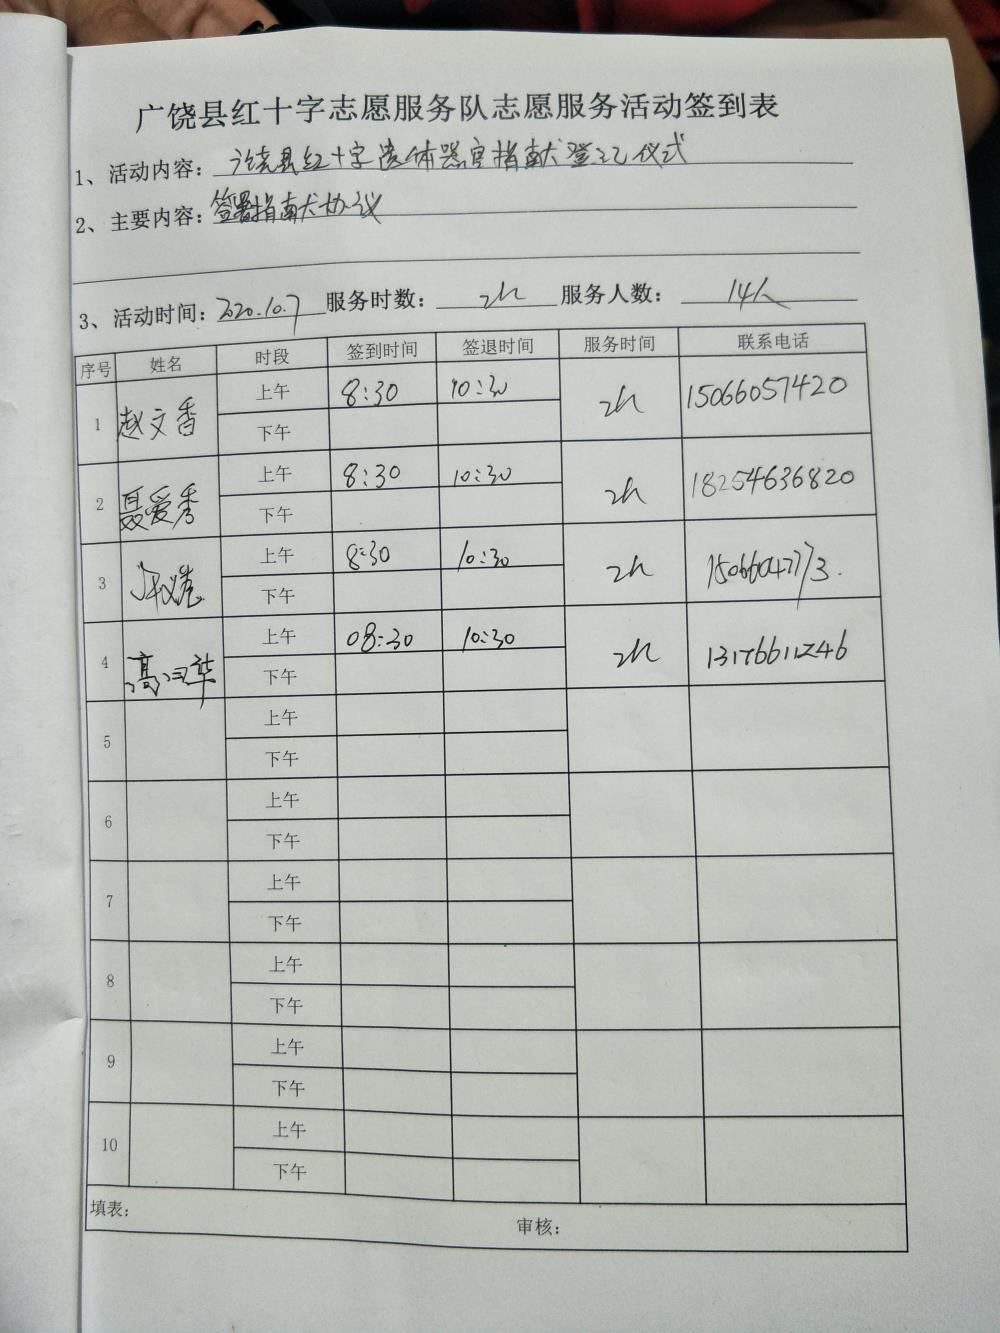 广饶县红十字志愿服务队志愿服务活动签到表
1、活动内容：广饶县红十字遗体器官捐献登记仪式
2、主要内容：签署捐献协议
3、活动时间：2020.10.7 服务时数：2h 服务人数：14人
序号 姓名 时段 签到时间 签退时间 服务时间 联系电话
1 赵文香 上午 8:30 10:30 2h 15066057420
下午
2 聂爱秀 上午 8:30 10:30 2h 18254636820
下午
3 上午 8:30 10:30 2h
下午
4 上午 08:30 10:30 2h 13176611246
下午
5 上午
下午
6 上午
下午
7 上午
下午
8 上午
下午
9 上午
下午
10 上午
下午
填表： 审核：